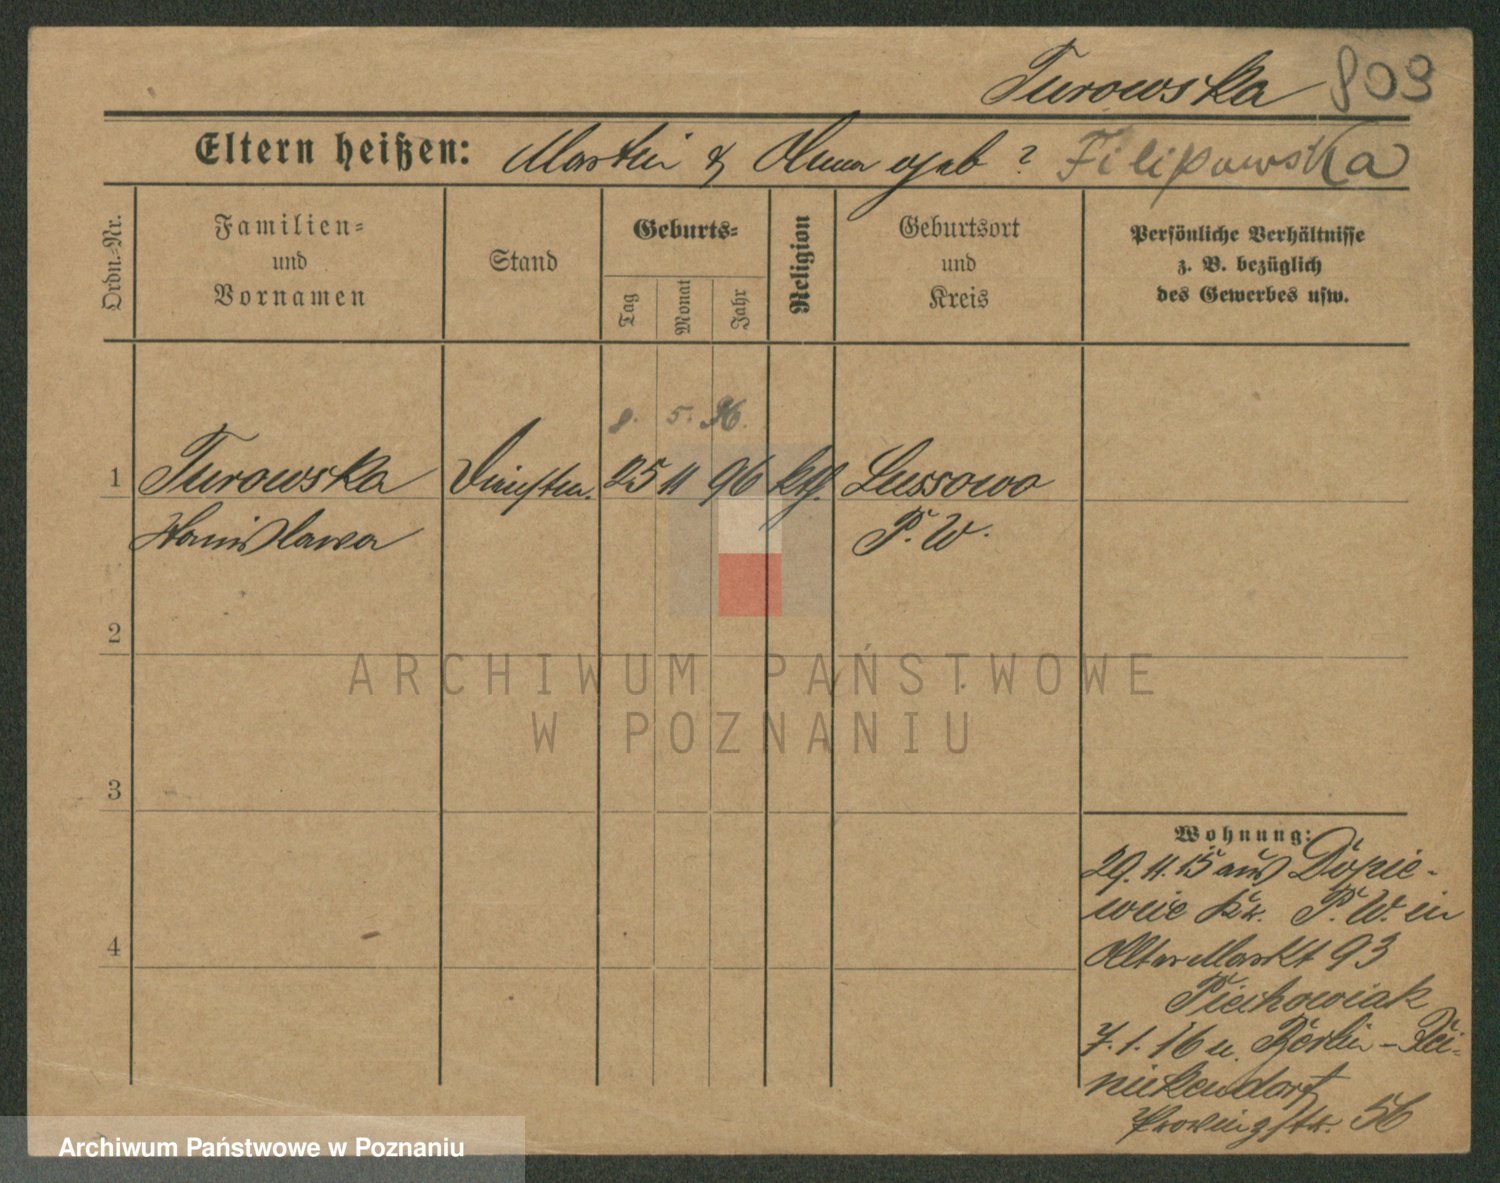 Turowska 809
Eltern heißen: Martin & Anna geb ? Filipowska
Ordn.-Nr.
Familien=
und
Vornamen
Stand
Geburts=
Tag
Monat
Jahr
Religion
Geburtsort
und
Kreis
Persönliche Verhältnisse
z. B. bezüglich
des Gewerbes usw.
8. 5. 96.
1 Turowska 25 11 96 kth. Lussowo
Stanislawa P. W.
2
3
4
Wohnung:
29. 11. 15 aus Dopie-
wiec Kr. P. W. in
Alter Markt 93
Piechowiak
7. 1. 16 n. Berlin - Rei-
nickendorf
Provinzstr. 56
ARCHIWUM PAŃSTWOWE
W POZNANIU
Archiwum Państwowe w Poznaniu